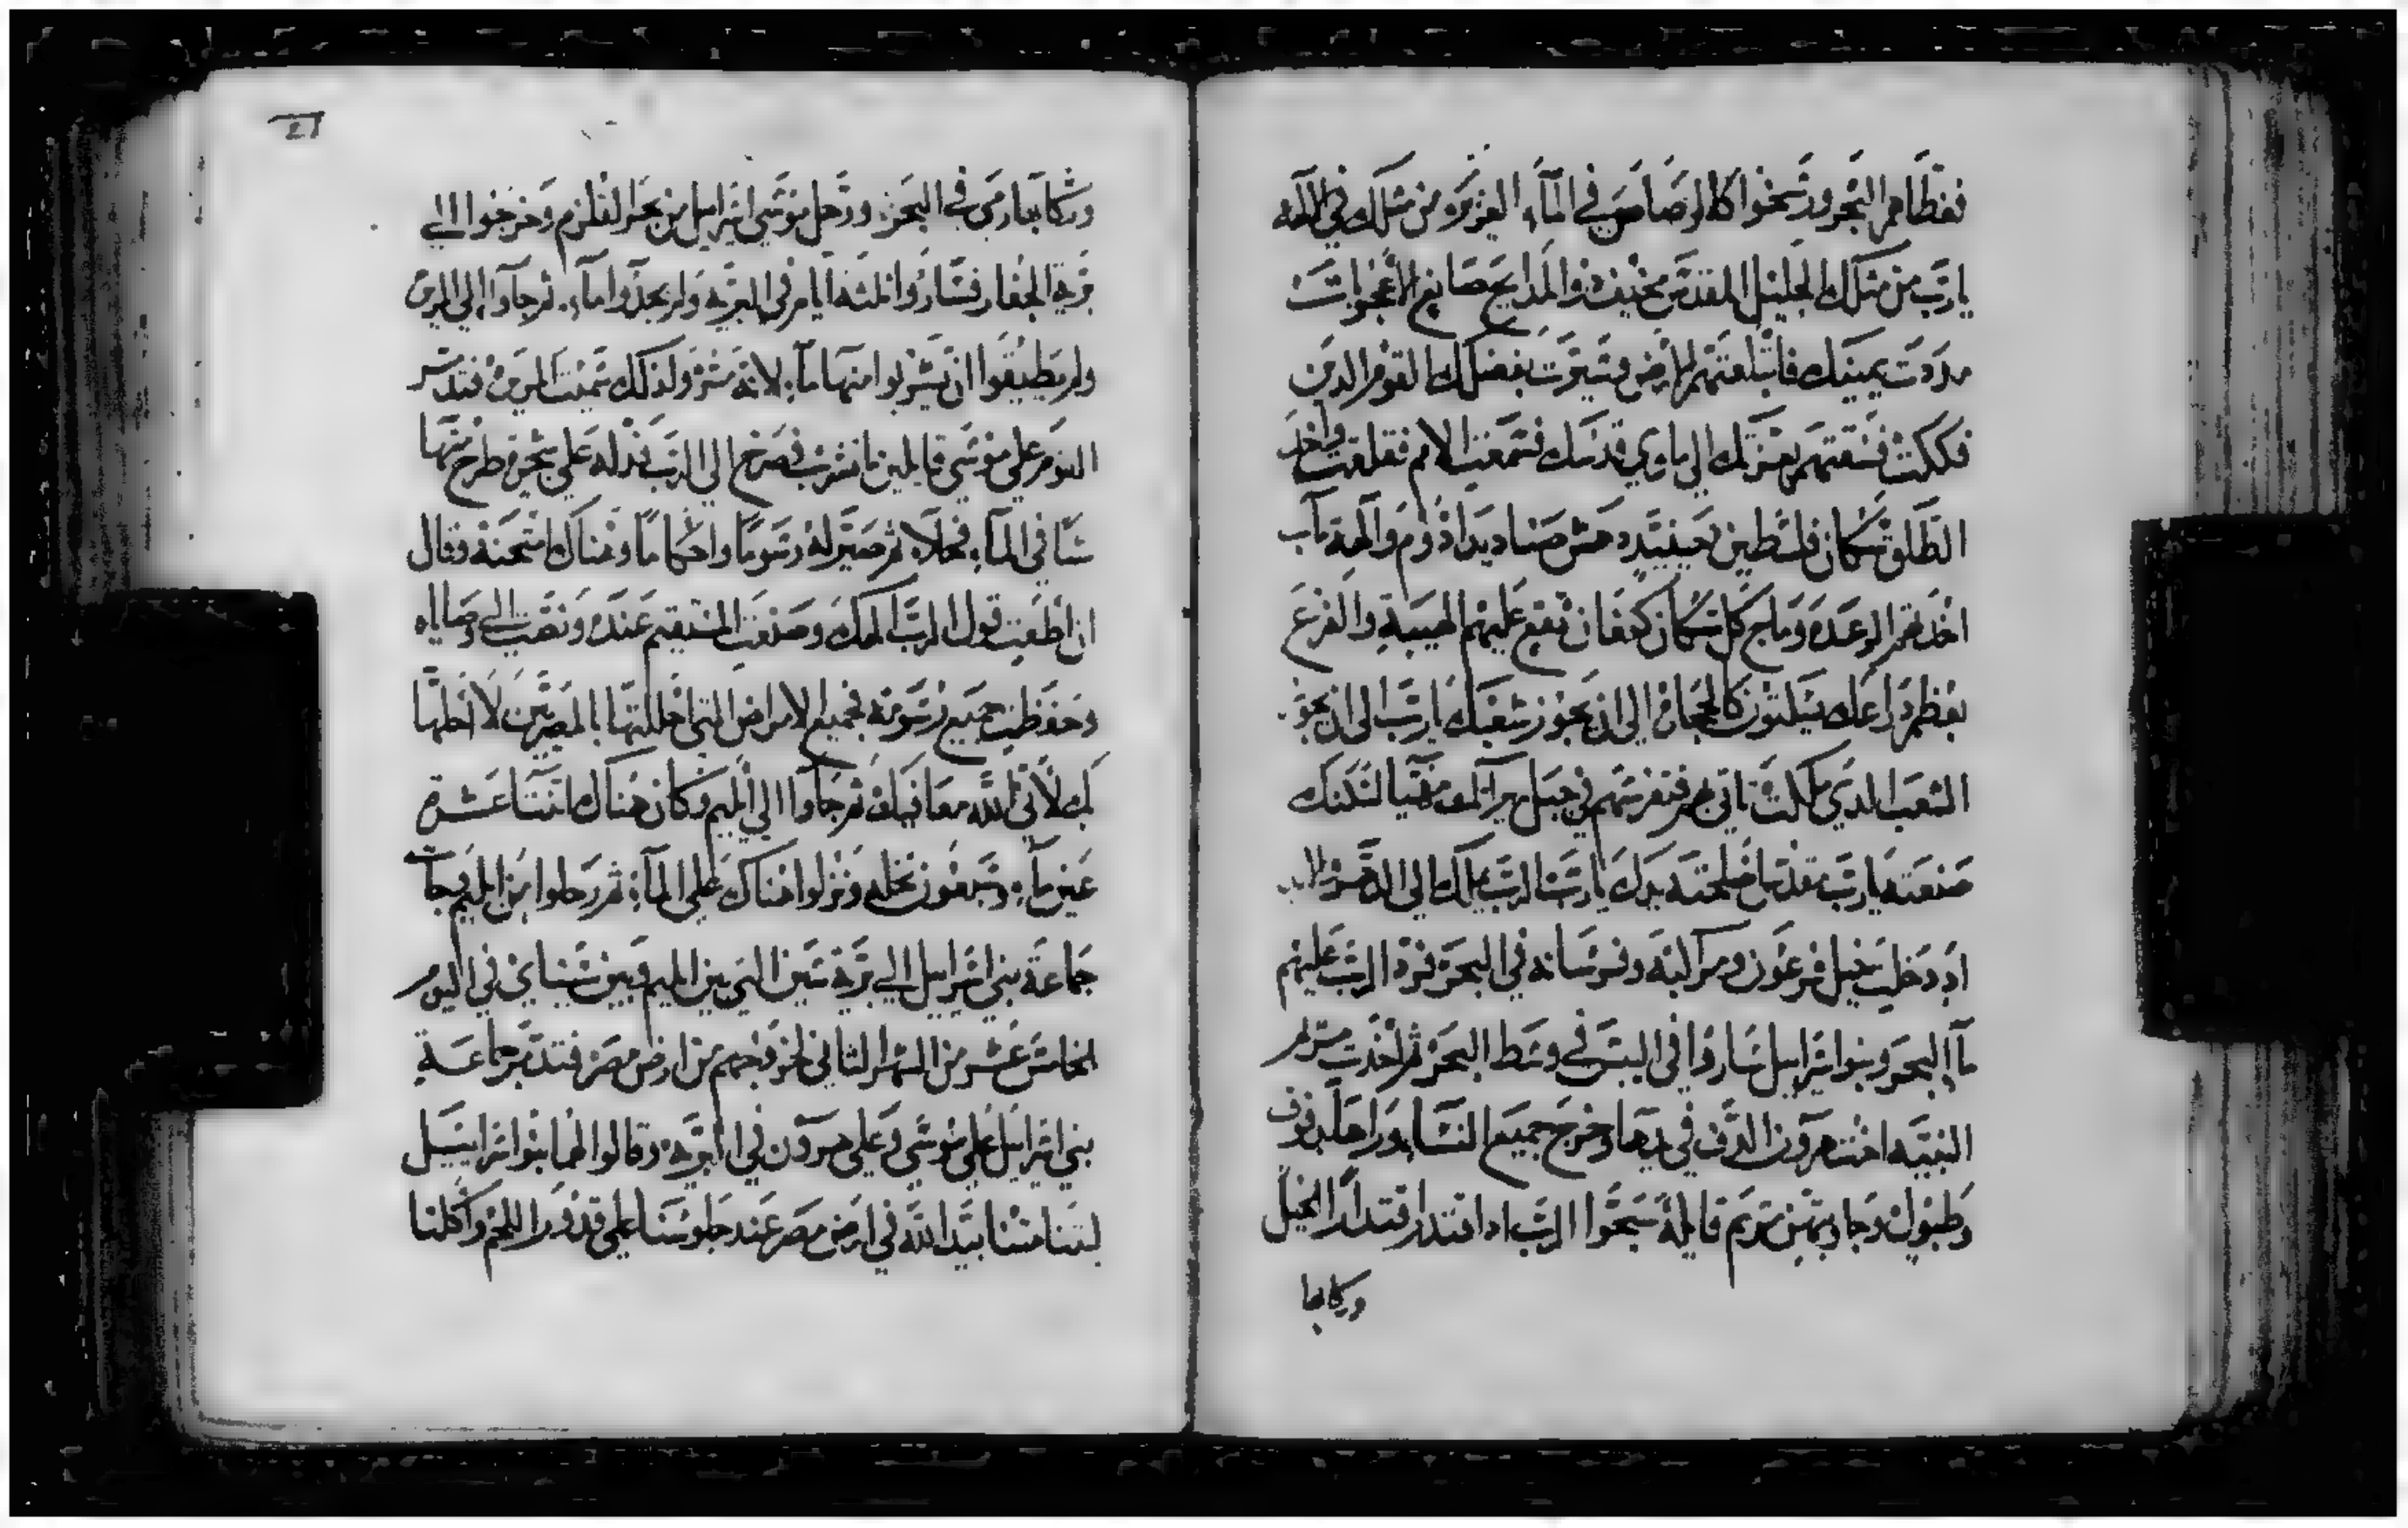 فغطاهم البحر ورسخوا كالرصاص في الماء الغزير من مثلك في الالهه
يارب من مثلك الجليل المقدس مخيف ذو المدايح صانع الاعجوبات
مددت يمينك فابتلعتهم الارض وسيرت بفضلك القوم الدين
فككت فسقتهم بعزتك الى ماوي قدسك فسمعت الامم فقلقت واخد
الطلق سكان فلسطين حينيد دهش صناديد ادوم والهة ماب
اخدتهم الرعده وماج كل سكان كنعان تقع عليهم الهيبة والفزع
بعظم دراعك يسكتون كالحجارة الى ان يجوز شعبك يارب الى ان يجوز
الشعب الدي ملكت تاتي بهم فتغرسهم في جبل ميراثك مهيا لسكنك
صنعته يارب مقدسا اصلحته يدك يارب الرب يملك الى الدهر الابد
اد دخلت خيل فرعون ومراكبه وفرسانه في البحر فرد الرب عليهم
ماء البحر وبنوا اسراييل ساروا في اليبس في وسط البحر ثم اخدت مريم
النبيه اخت هرون الدف في يدها وخرج جميع النسا وراها بدفوف
وطبول وجاوبتهن مريم قايلة سبحوا الرب اد اقتدر اقتدارا الخيل
وركابها
٤٦
وركابها رمى في البحر ورحل موسى اسراييل من بحر القلزم وخرجوا الي
برية الجفار فساروا ثلثه ايام في البريه ولم يجدوا ماء ثم جاوا الى المرة
ولم يطيقوا ان يشربوا منها ماء لانه مر ولدلك سميت المره فتدمر
القوم على موسى قايلين ما نشرب فصرخ الى الرب فدله على شجره طرح منها
شيا في الماء فحلا ثم صير له رسوما واحكاما وهناك امتحنه وقال
ان اطعت قول الرب الهك وصنعت المستقيم عنده ونصت الي وصاياه
وحفظت جميع رسومه فجميع الامراض التي احللتها بالمصريين لا احلها
بك لاني الله معافيك ثم جاوا الى ايليم وكان هناك اثنتا عشرة
عين ماء وسبعون نخله ونزلوا هناك على الماء ثم رحلوا من ايليم وجات
جماعة بني اسراييل الي برية سين التي بين ايليم وبين سيناي في اليوم
الخامس عشر من الشهر الثاني لخروجهم من ارض مصر فتدمر جماعة
بني اسراييل على موسى وعلى هرون في البريه وقالوا لهما بنوا اسراييل
ليتنا متنا بيد الله في ارض مصر عند جلوسنا على قدور اللحم واكلنا